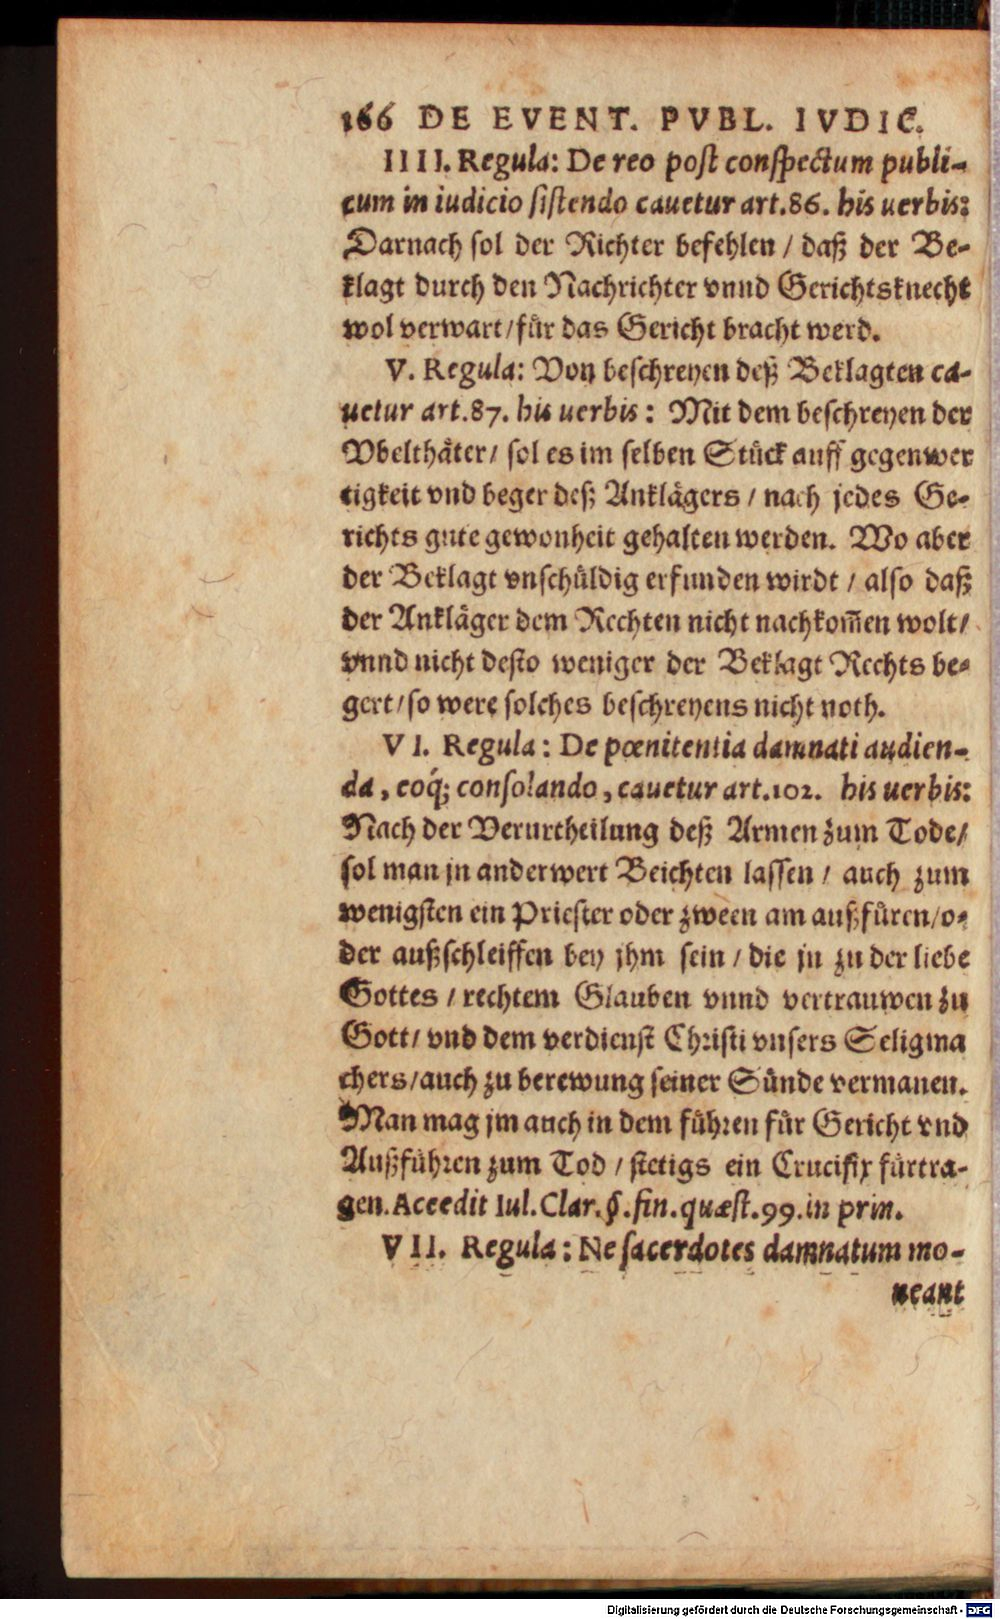 166 DE EVENT. PVBL. IVDIC.
IIII. Regula: De reo post conspectum publi-
cum in iudicio sistendo cauetur art.86. his uerbis:
Darnach sol der Richter befehlen / daß der Be-
klagt durch den Nachrichter vnnd Gerichtsknecht
wol verwart/für das Gericht bracht werd.
V. Regula: Von beschreyen deß Beklagten ca-
uetur art.87. his uerbis: Mit dem beschreyen der
Vbelthäter/ sol es im selben Stück auff gegenwer
tigkeit vnd beger deß Anklägers / nach jedes Ge-
richts gute gewonheit gehalten werden. Wo aber
der Beklagt vnschüldig erfunden wirdt / also daß
der Ankläger dem Rechten nicht nachkom̃en wolt/
vnnd nicht desto weniger der Beklagt Rechts be-
gert/so were solches beschreyens nicht noth.
VI. Regula: De pœnitentia damnati audien-
da, eoq́; consolando, cauetur art.102. his uerbis:
Nach der Verurtheilung deß Armen zum Tode/
sol man jn anderwert Beichten lassen / auch zum
wenigsten ein Priester oder zween am außfüren/o-
der außschleiffen bey jhm sein / die jn zu der liebe
Gottes / rechtem Glauben vnnd vertrauwen zu
Gott/ vnd dem verdienst Christi vnsers Seligma
chers/auch zu berewung seiner Sünde vermanen.
Man mag jm auch in dem führen für Gericht vnd
Außführen zum Tod / stetigs ein Crucifix fürtra-
gen. Aceedit Iul. Clar. §. fin. quæst. 99. in prin.
VII. Regula: Ne sacerdotes damnatum mo-
neant
Digitalisierung gefördert durch die Deutsche Forschungsgemeinschaft - DFG